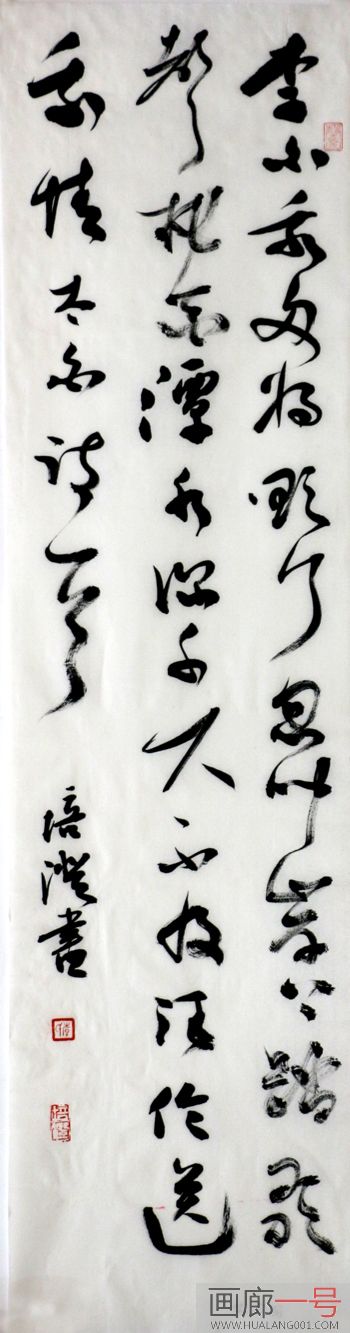 李白乘舟将欲行忽闻岸上踏歌
声桃花潭水深千尺不及汪伦送
我情太白诗一首
培澄书
画廊一号
WWW.HUALANG001.COM